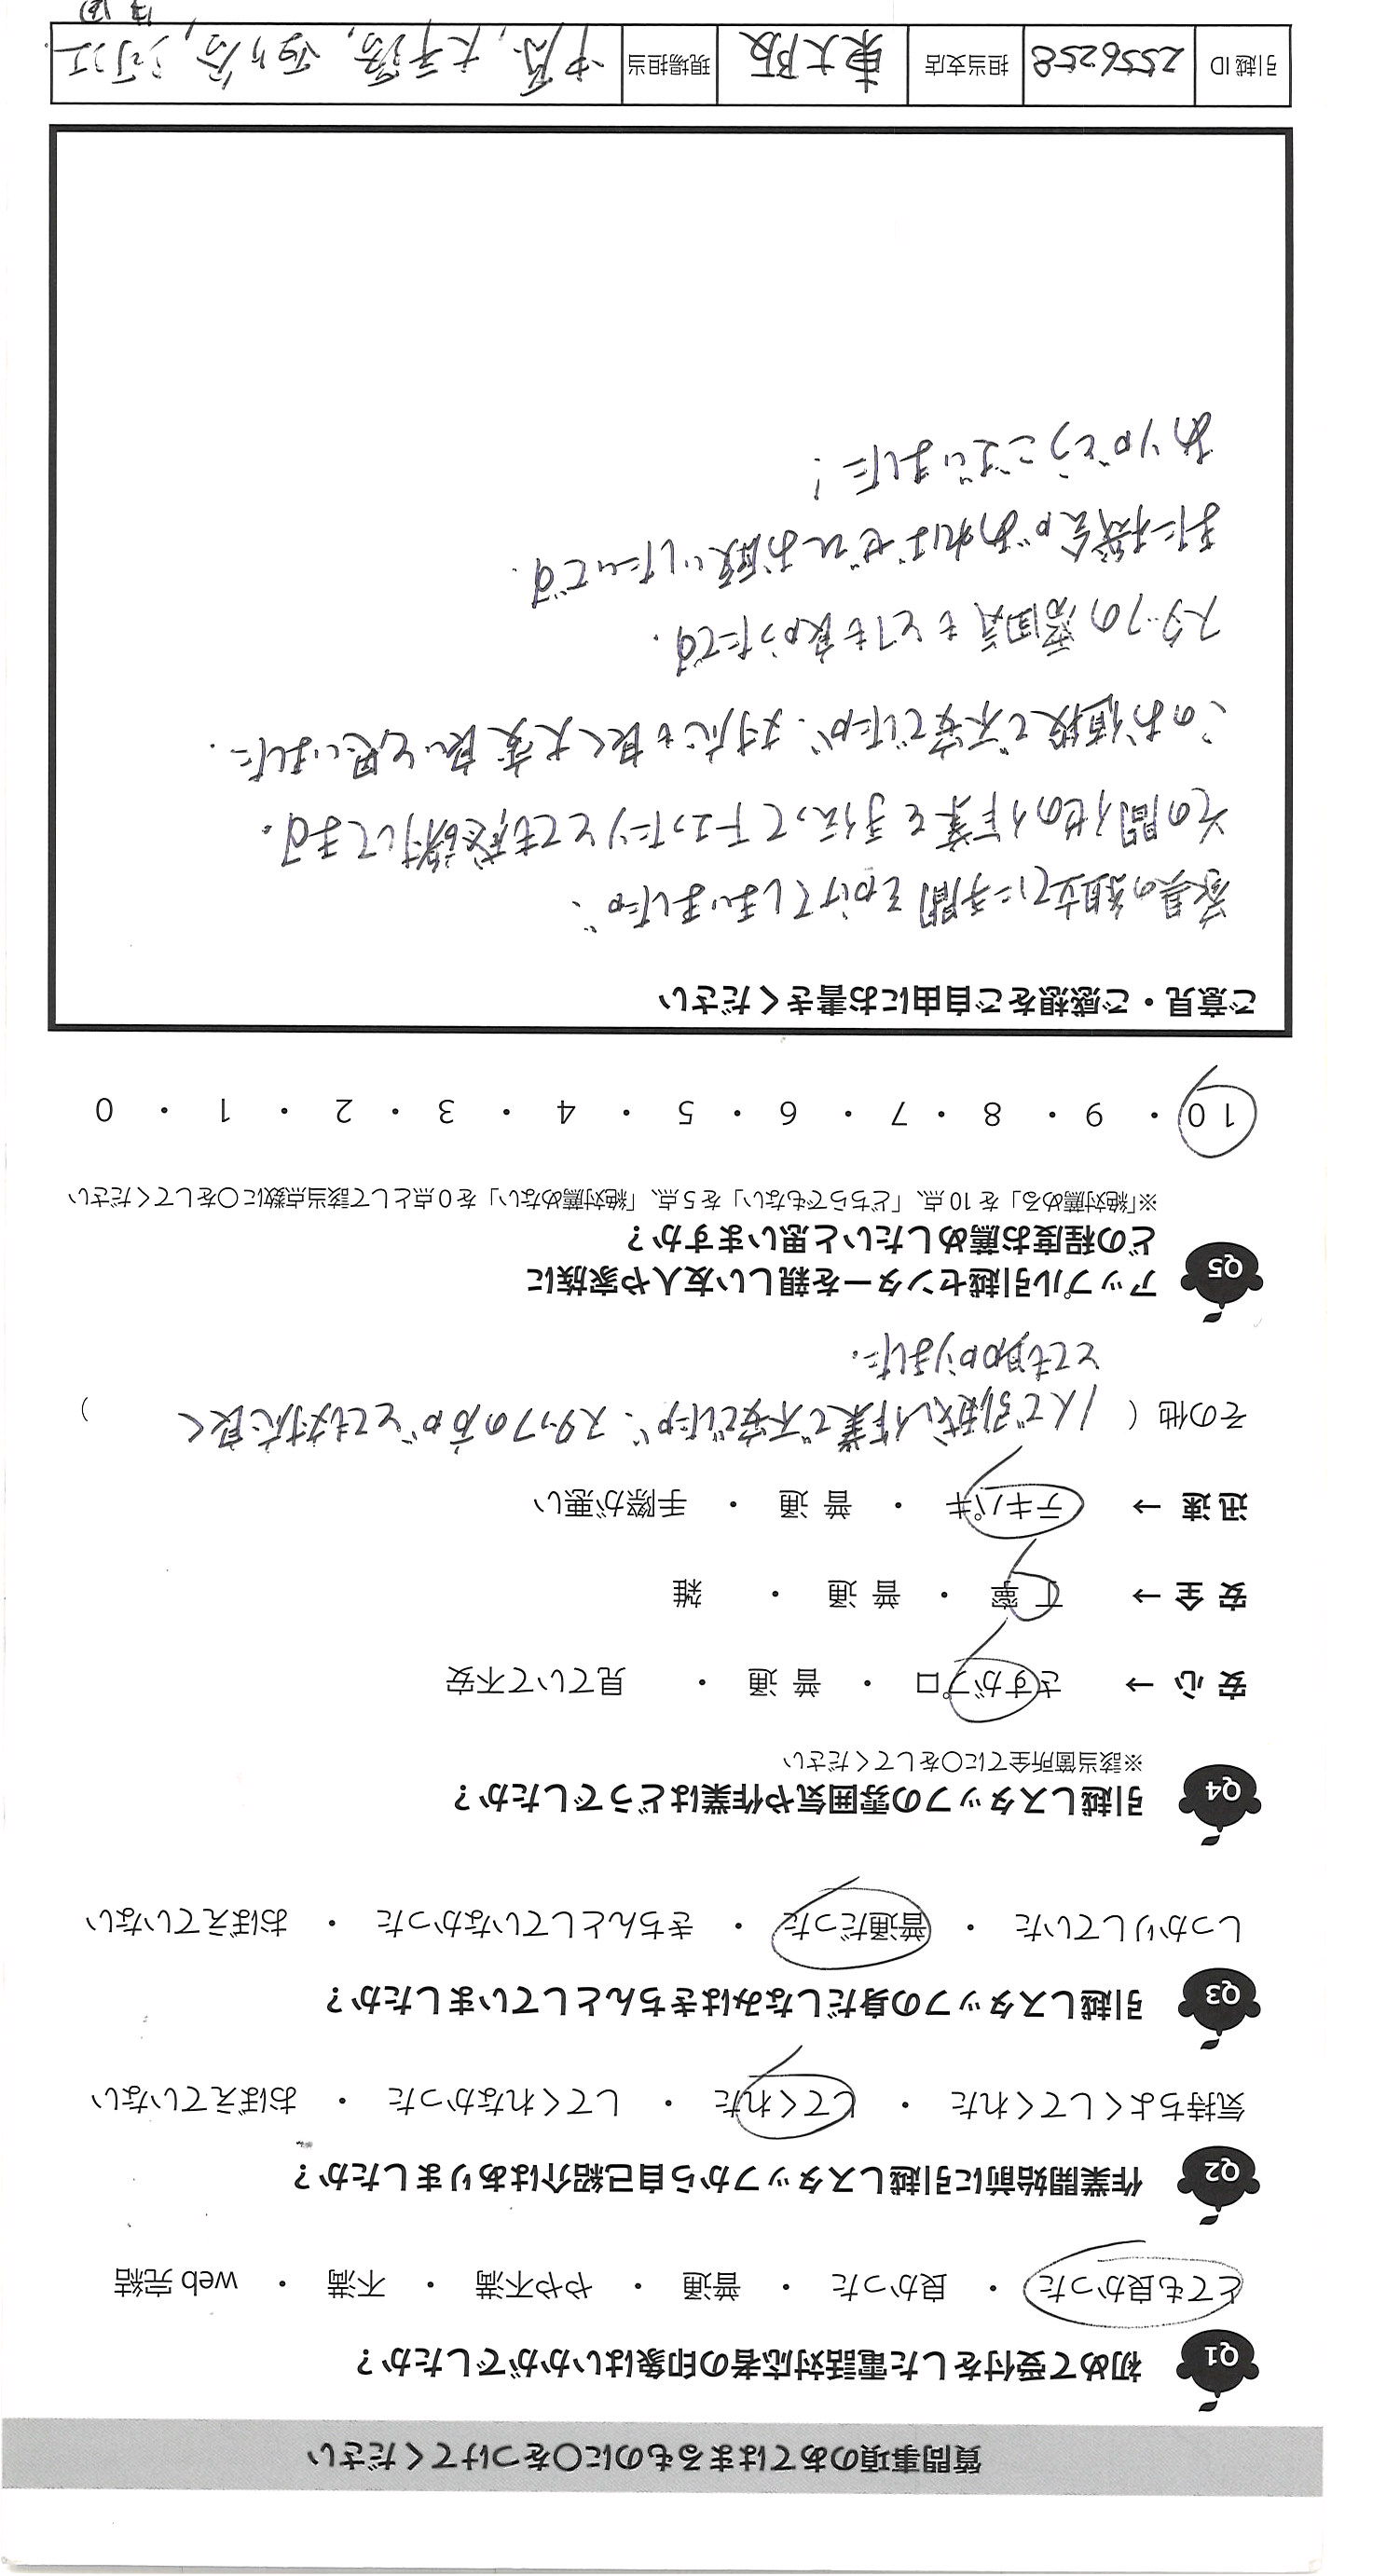 質問事項のあてはまるものに〇をつけてください
Q1 初めて受付をした電話対応者の印象はいかがでしたか？
とても良かった ・ 良かった ・ 普通 ・ やや不満 ・ 不満 ・ web 完結
Q2 作業開始前に引越しスタッフから自己紹介はありましたか？
気持ちよくしてくれた ・ してくれた ・ してくれなかった ・ おぼえていない
Q3 引越しスタッフの身だしなみはきちんとしていましたか？
しっかりしていた ・ 普通だった ・ きちんとしていなかった ・ おぼえていない
Q4 引越しスタッフの雰囲気や作業はどうでしたか？
※該当箇所全てに〇をしてください
安 心 → さすがプロ ・ 普 通 ・ 見ていて不安
安 全 → 丁 寧 ・ 普 通 ・ 雑
迅 速 → テキパキ ・ 普 通 ・ 手際が悪い
その他（ 1人で引越し作業で不安でしたが、スタッフの方がとても対応良く ）
とても助かりました。
Q5 アップル引越センターを親しい友人や家族に
どの程度お薦めしたいと思いますか？
※「絶対薦める」を 10 点、「どちらでもない」を 5 点、「絶対薦めない」を 0 点として該当点数に〇をしてください
10 ・ 9 ・ 8 ・ 7 ・ 6 ・ 5 ・ 4 ・ 3 ・ 2 ・ 1 ・ 0
ご意見・ご感想をご自由にお書きください
家具の組立てに手間をかけてしまいましたが、
その間他の作業を手伝って下さったりとても感謝してます。
このお値段で不安でしたが、対応も良く大変良いと思いました。
スタッフの雰囲気もとても良かったです。
また機会があればぜひお願いしたいです。
ありがとうございました！
引越 ID 2556258 担当支店 東大阪 現場担当